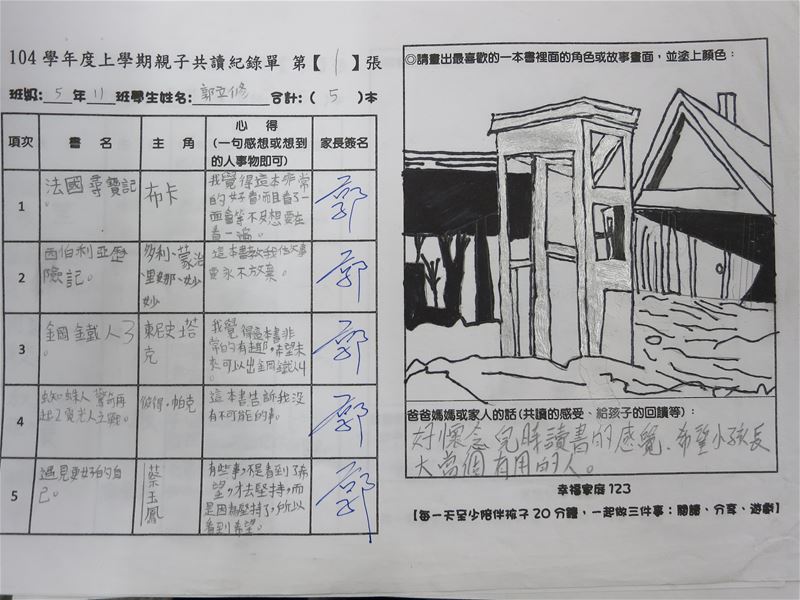 104 學年度上學期親子共讀紀錄單 第【 1 】張
班級: 5 年 11 班學生姓名: 郭立修 合計:( 5 )本
項次 書 名 主 角 心 得 家長簽名
(一句感想或想到
的人事物即可)
1 法國尋寶記。 布卡 我覺得這本非常
的好看,而且看了一
面會等不及想要在
看一遍。 郭
2 西伯利亞歷
險記。 多利、蒙治
里娜、妙
妙 這本書教我做大事
要永不放棄。 郭
3 鋼鐵人3
。 東尼史塔
克 我覺得這本書非
常的有趣,希望未
來可以出鋼鐵人4
。 郭
4 蜘蛛人驚奇再
起2電光人之戰。 彼得·帕克 這本書告訴我沒
有不可能的事。 郭
5 遇見更好的自
己。 蔡
玉
鳳 有些事,不是看到了希
望,才去堅持,而
是因為堅持了,所以
看到希望。 郭
◎請畫出最喜歡的一本書裡面的角色或故事畫面,並塗上顏色:
爸爸媽媽或家人的話(共讀的感受、給孩子的回饋等):
好懷念兒時讀書的感覺.希望小孩長
大當個有用的人。
幸福家庭 123
【每一天至少陪伴孩子 20 分鐘,一起做三件事:閱讀、分享、遊戲】